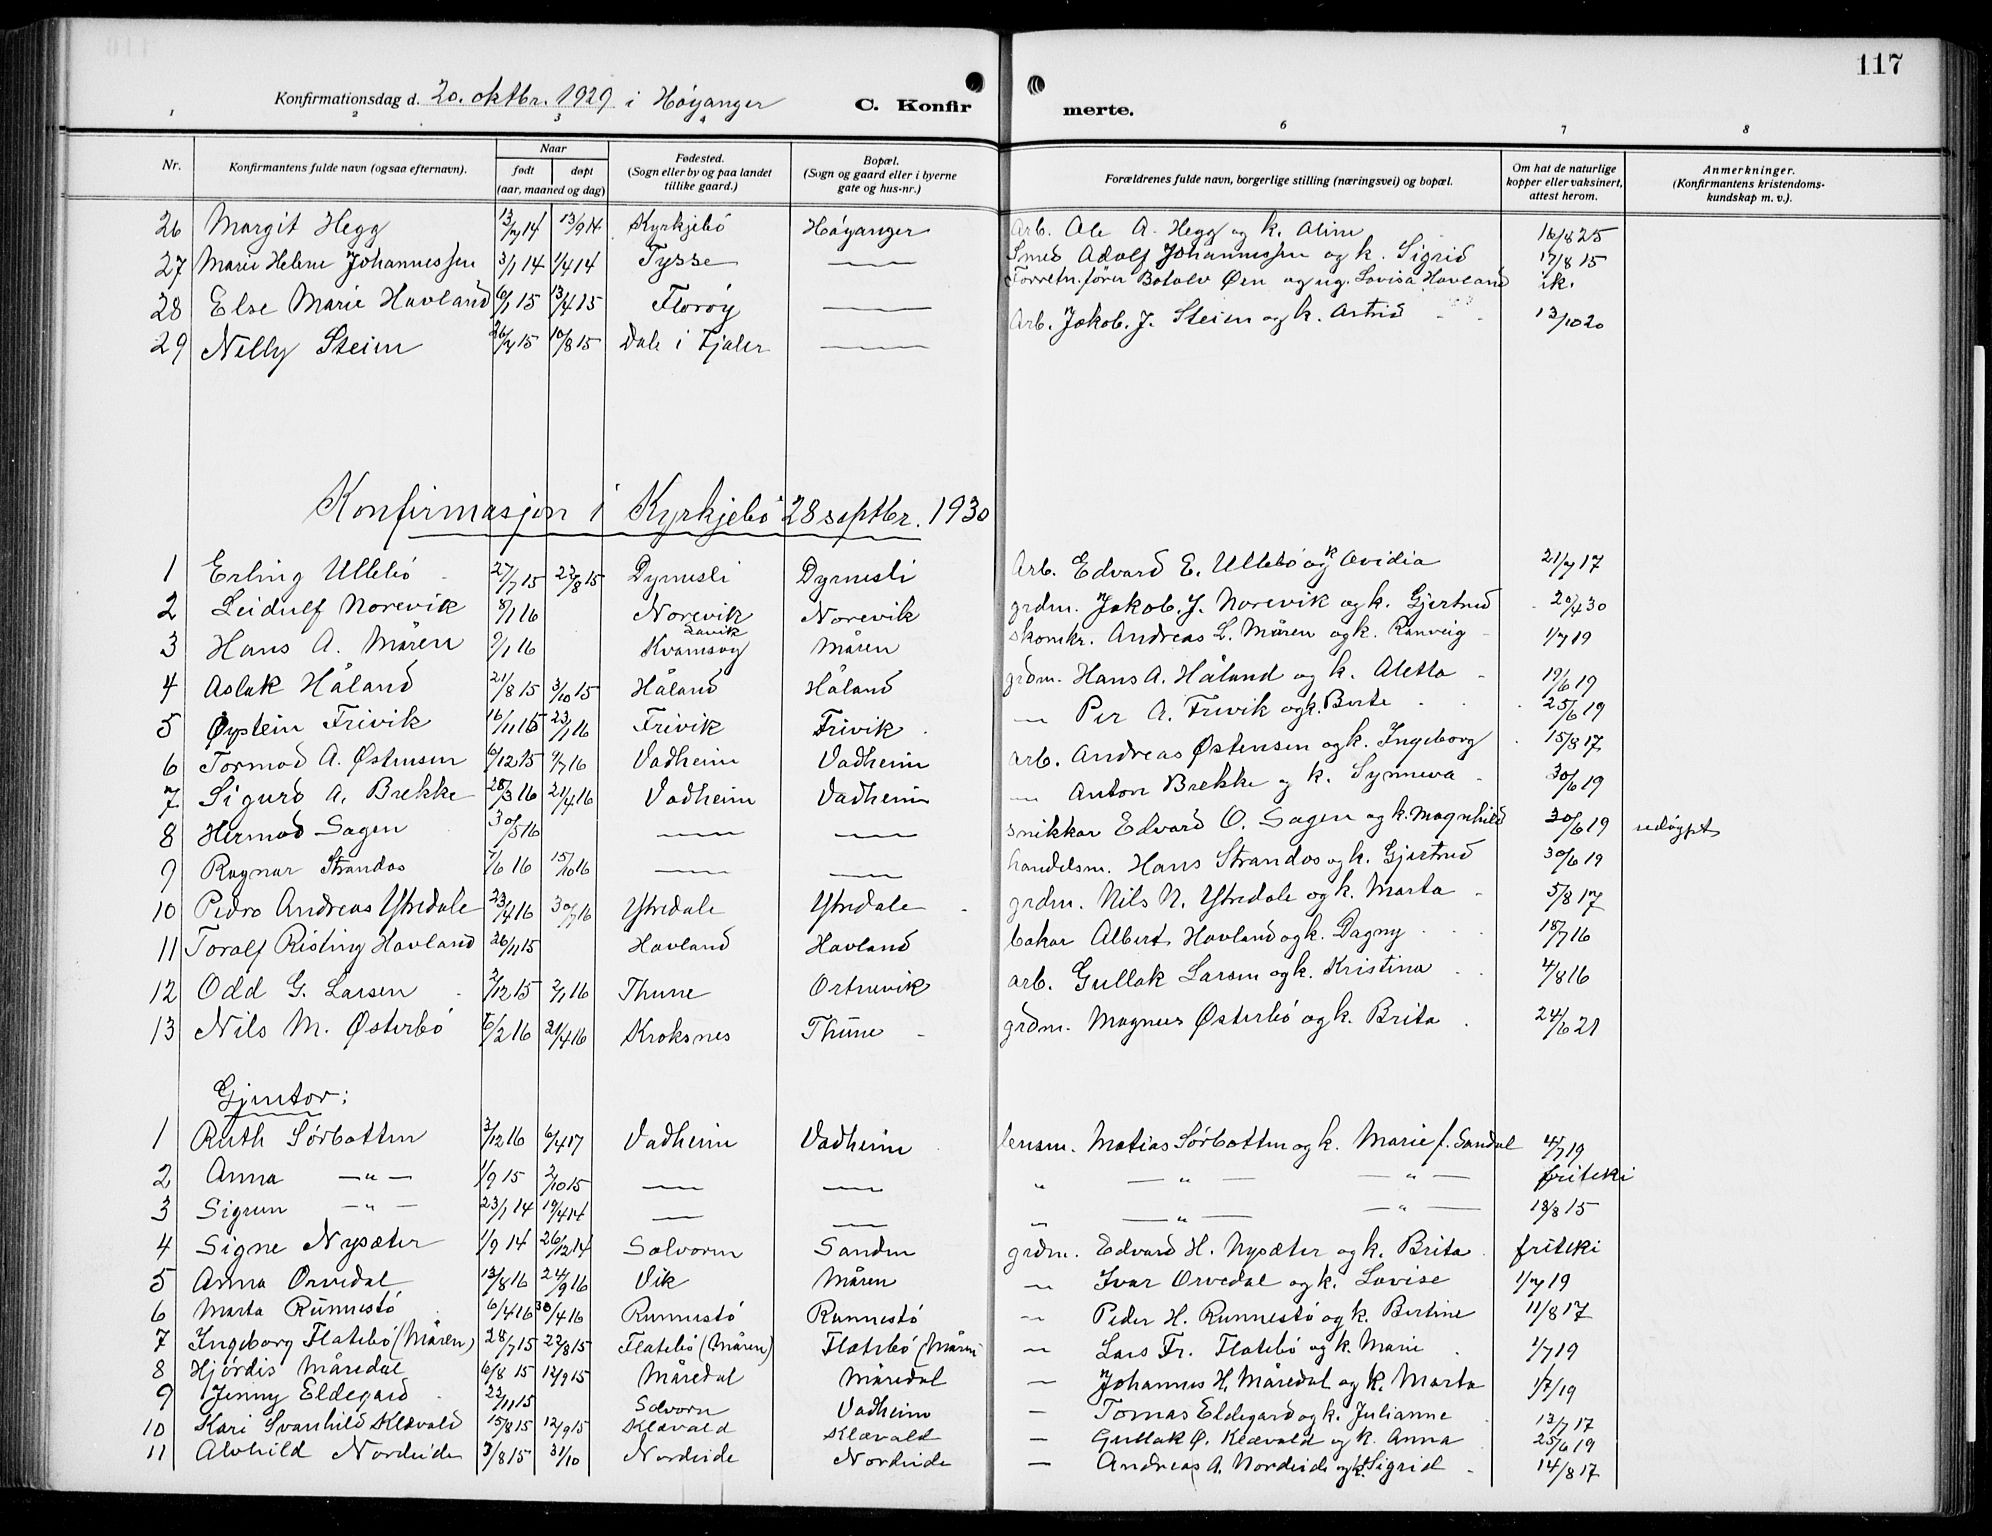 117
Konfirmationsdag d. 20. oktbr. 1929 i Høyanger C. Konfirmerte.
1 2 3 4 6 7 8
Nr. Konfirmantens fulde navn (ogsaa efternavn). Naar født døpt (aar, maaned og dag) Fødested. (Sogn eller by og paa landet tillike gaard.) Bopæl. (Sogn og gaard eller i byerne gate og hus-nr.) Forældrenes fulde navn, borgerlige stilling (næringsvei) og bopæl. Om hat de naturlige kopper eller vaksinert, attest herom. Anmerkninger. (Konfirmantens kristendoms-kundskap m. v.).
26 Margit Hegg 13/7 14 13/9 14 Kyrkjebó Høyanger Arb. Ole A. Hegg og k. Aline 16/8 25
27 Marie Helene Johannessen 3/1 14 1/4 14 Tysse — Smed Adolf Johannessen og k. Sigrid 17/8 15
28 Else Marie Hovland 6/1 15 13/4 15 Florøy — Forretn.fører Botolv Øen og ug. Lovisa Hovland ik.
29 Nelly Steien 26/4 15 10/8 15 Dale i Fjaler — Arb. Jakob. J. Steien og k. Astrid 13/10 20
Konfirmasjon i Kyrkjebó 28 septbr. 1930
1 Erling Ullebó 27/7 15 22/8 15 Dyrnesli Dyrnesli Arb. Edvard E. Ullebó og k Ovidia 21/7 17
2 Leidulf Norevik 8/1 16 Norevik Norevik grdm. Jakob. J. Norevik og k. Gjertrud 20/4 30
3 Hans A. Måren 9/1 16 Lavik Kvamsøy Måren skomkr. Andreas L. Måren og k. Ranveig 1/7 19
4 Aslak Håland 21/8 15 3/10 15 Håland Håland grdm. Hans A. Håland og k. Aletta 19/6 19
5 Øystein Frivik 16/11 15 23/1 16 Frivik Frivik — Per A. Frivik og k. Berte 25/6 19
6 Tormod A. Østensen 6/12 15 9/7 16 Vadheim Vadheim arb. Andreas Østensen og k. Ingeborg 15/8 17
7 Sigurd A. Brekke 28/3 16 21/4 16 Vadheim Vadheim — Anton Brekke og k. Synneva 30/6 19
8 Hermod Sagen 30/5 16 — — snikkar Edvard O. Sagen og k. Magnhild 30/6 19 udøypt
9 Ragnar Strandos 7/6 16 15/10 16 — — handelsm. Hans Strandos og k. Gjertrud 30/6 19
10 Pedro Andreas Ytredale 23/4 16 30/7 16 Ytredale Ytredale grdm. Nils N. Ytredale og k. Marta 5/8 17
11 Toralf Risting Hovland 26/11 15 Hovland Hovland bakar Albert Hovland og k. Dagny 18/7 16
12 Odd G. Larsen 2/12 15 2/1 16 Thune Ortnevik arb. Gullak Larsen og k. Kristina 4/8 16
13 Nils M. Østerbó 6/2 16 21/4 16 Kroksnes Thune grdm. Magnus Østerbó og k. Brita 24/6 21
Gjentor:
1 Ruth Sørbotten 3/12 16 6/4 17 Vadheim Vadheim lensm. Matias Sørbotten og k. Marie f. Sandal 4/7 19
2 Anna —"— 1/9 15 2/10 15 — — " —"— —"— friteki
3 Sigrun —"— 23/1 14 19/4 14 — — — —"— —"— 18/8 15
4 Signe Nysæter 1/9 14 26/12 14 Solvorn Sanden grdm. Edvard H. Nysæter og k. Brita friteki
5 Anna Orvedal 13/8 16 24/9 16 Vik Måren — Ivar Orvedal og k. Lovise 1/7 19
6 Marta Runnestó 6/4 16 30/4 16 Runnestó Runnestó — Peder H. Runnestó og k. Bertine 11/8 17
7 Ingeborg Flatebó (Måren) 28/7 15 22/8 15 Flatebó (Måren) Flatebó (Måren — Lars Fr. Flatebó og k. Marie 1/7 19
8 Hjørdis Måredal 6/8 15 12/9 15 Måredal Måredal — Johannes H. Måredal og k. Marta 1/7 19
9 Jenny Eldegard 22/11 15 Solvorn Vadheim — Tomas Eldegard og k. Julianne 13/7 17
10 Kari Svanhild Klævold 15/8 15 12/9 15 Klævold Klævold — Gullak Ø. Klævold og k. Anna 25/6 19
11 Alvhild Nordeide 3/8 15 31/10 Nordeide Nordeide — Andreas A. Nordeide og k. Sigrid 14/8 17